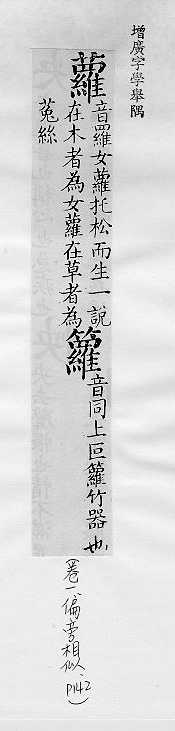 增廣字學舉隅
蘿音羅女蘿托松而生一說
在木者為女蘿在草者為
菟絲
籮音同上叵籮竹器也
(卷一偏旁相似、P142)